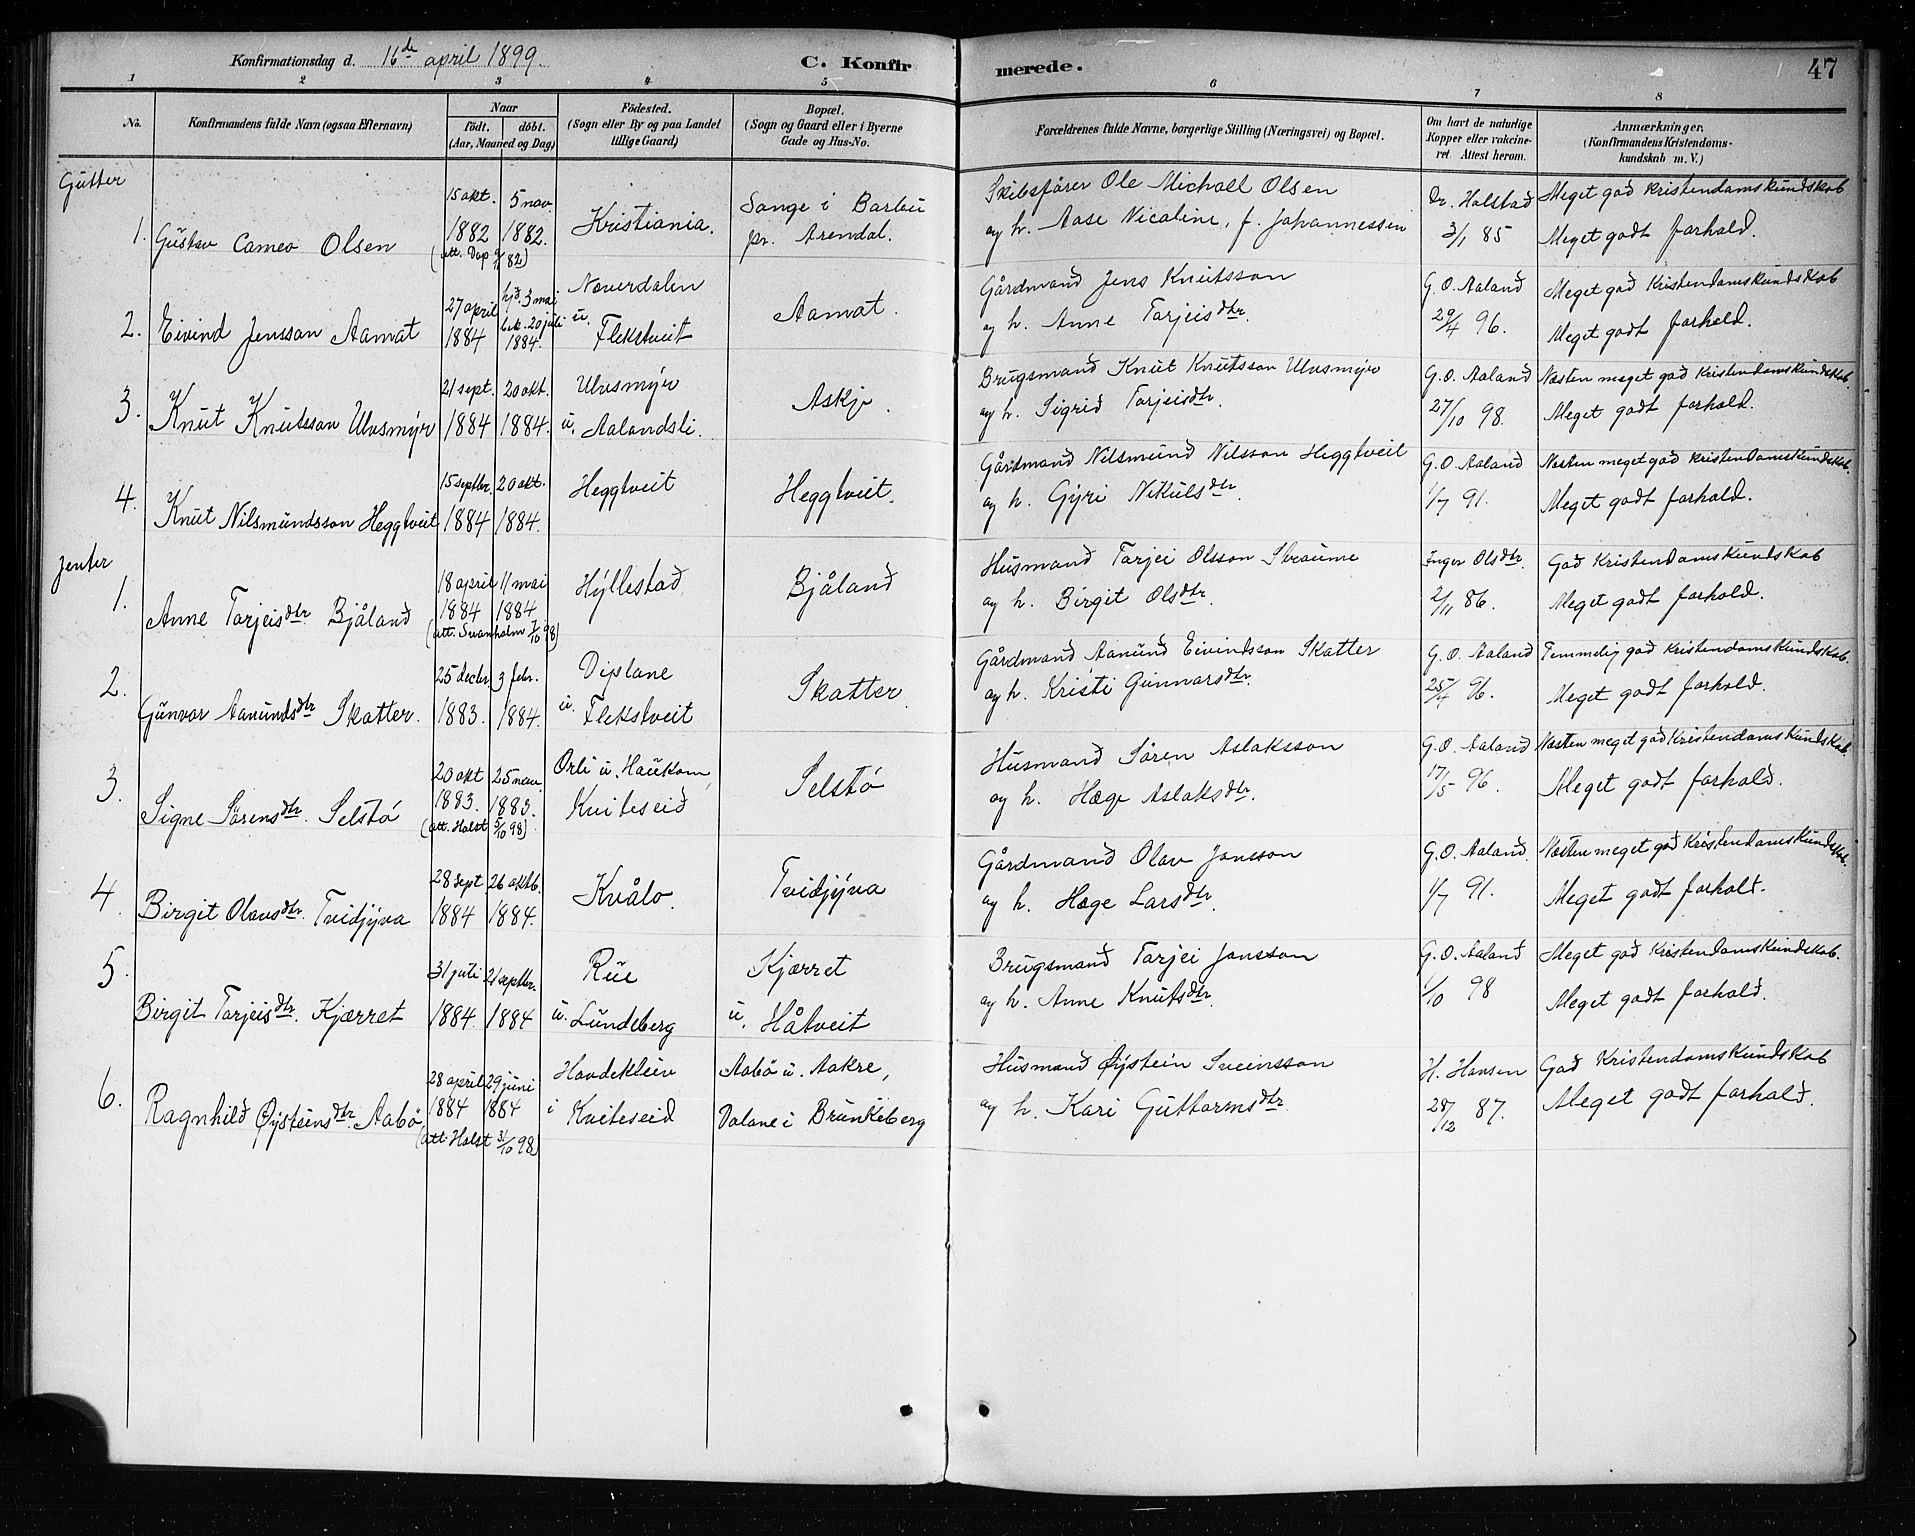 Konfirmationsdag d. 16de april 1899.
C. Konfirmerede.
47
1 2 3 4 5 6 7 8
No.
Konfirmandens fulde Navn (ogsaa Efternavn)
Naar
födt. döbt.
(Aar, Maaned og Dag)
Födested.
(Sogn eller By og paa Landet
tillige Gaard)
Bopæl.
(Sogn og Gaard eller i Byerne
Gade og Hus-No.
Forældrenes fulde Navne, borgerlige Stilling (Næringsvei) og Bopæl.
Om havt de naturlige
Kopper eller vakcine-
ret Attest herom.
Anmærkninger.
(Konfirmandens Kristendoms-
kundskab m. V.)
Gutter
1. Gustav Cameo Olsen
15 okt. 1882
5 nov. 1882.
(att. Dop 9/1 82)
Kristiania.
Songe i Barbu
pr. Arendal.
Skibsfører Ole Michael Olsen
og h. Aase Nicoline, f. Johannessen
Dr. Holstad
3/1 85
Meget god Kristendomskundskab
Meget godt forhold.
2. Eivind Jensson Aamot
27 april 1884
hjd. 3 mai
bek. 20 juli
1884.
Noverdalen
u. Flekstveit
Aamot.
Gårdmand Jens Knutsson
og h. Anne Tarjeisdtr.
G. O. Aaland
29/4 96.
Meget god Kristendomskundskab
Meget godt forhold.
3. Knut Knutsson Ulvsmyr
21 sept. 1884
20 okt. 1884.
Ulvsmyr
u. Aalandsli.
Askje.
Brugsmand Knut Knutsson Ulvsmyr
og h. Sigrid Tarjeisdtr.
G. O. Aaland
27/10 98.
Næsten meget god Kristendomskundskab.
Meget godt forhold.
4. Knut Nilsmundsson Heggtveit
15 septbr. 1884
20 okt. 1884.
Heggtveit
Heggtveit.
Gårdmand Nilsmund Nilsson Heggtveit
og h. Gyri Nikulsdtr.
G. O. Aaland
1/7 91.
Næsten meget god Kristendomskundskab.
Meget godt forhold.
Jenter
1. Anne Tarjeisdtr Bjåland
18 april 1884
11 mai 1884.
(att. Svanholm 7/10 98)
Hyllestad
Bjåland
Husmand Tarjei Olsson Straume
og h. Birgit Olsdtr.
Inger Olsdtr.
2/11 86.
God Kristendomskundskab
Meget godt forhold.
2. Gunvor Aanundsdtr Skatter.
25 decbr. 1883.
3 febr. 1884.
Diplane
u. Flekstveit
Skatter.
Gårdmand Aanund Eivindsson Skatter
og h. Kristi Gunnarsdtr.
G. O. Aaland
25/4 96.
Temmelig god Kristendomskundskab.
Meget godt forhold.
3. Signe Sørensdtr. Selstø
20 okt 1883.
25 nov. 1883.
(att. Holst 5/10 98)
Orli u. Haukom,
Kviteseid
Selstø
Husmand Søren Aslaksson
og h. Hæge Aslaksdtr.
G. O. Aaland
17/5 96.
Næsten meget god Kristendomskundskab.
Meget godt forhold.
4. Birgit Olavsdtr. Tvidjyva
28 sept 1884
26 oktb. 1884.
Kvålo.
Tvidjyva
Gårdmand Olav Jonsson
og h. Hæge Larsdtr.
G. O. Aaland.
1/7 91.
Næsten meget god Kristendomskundskab.
Meget godt forhold.
5. Birgit Tarjeisdtr. Kjærret
31 juli 1884.
21 septbr. 1884
Rue
u. Lundeberg
Kjærret
u. Håtveit
Brugsmand Tarjei Jonsson
og h. Anne Knutsdtr.
G. O. Aaland
1/10 98
Meget god Kristendomskundskab.
Meget godt forhold.
6. Ragnhild Øysteinsdtr. Aabø
28 april 1884
29 juni 1884
(att. Holst 31/10 98)
Hovdekleiv
i Kviteseid
Aabø u. Aakre,
Dalane i Brunkeberg
Husmand Øystein Sveinsson
og h. Kari Guttormsdtr
H. Hansen
28/12 87.
God Kristendomskundskab
Meget godt forhold.